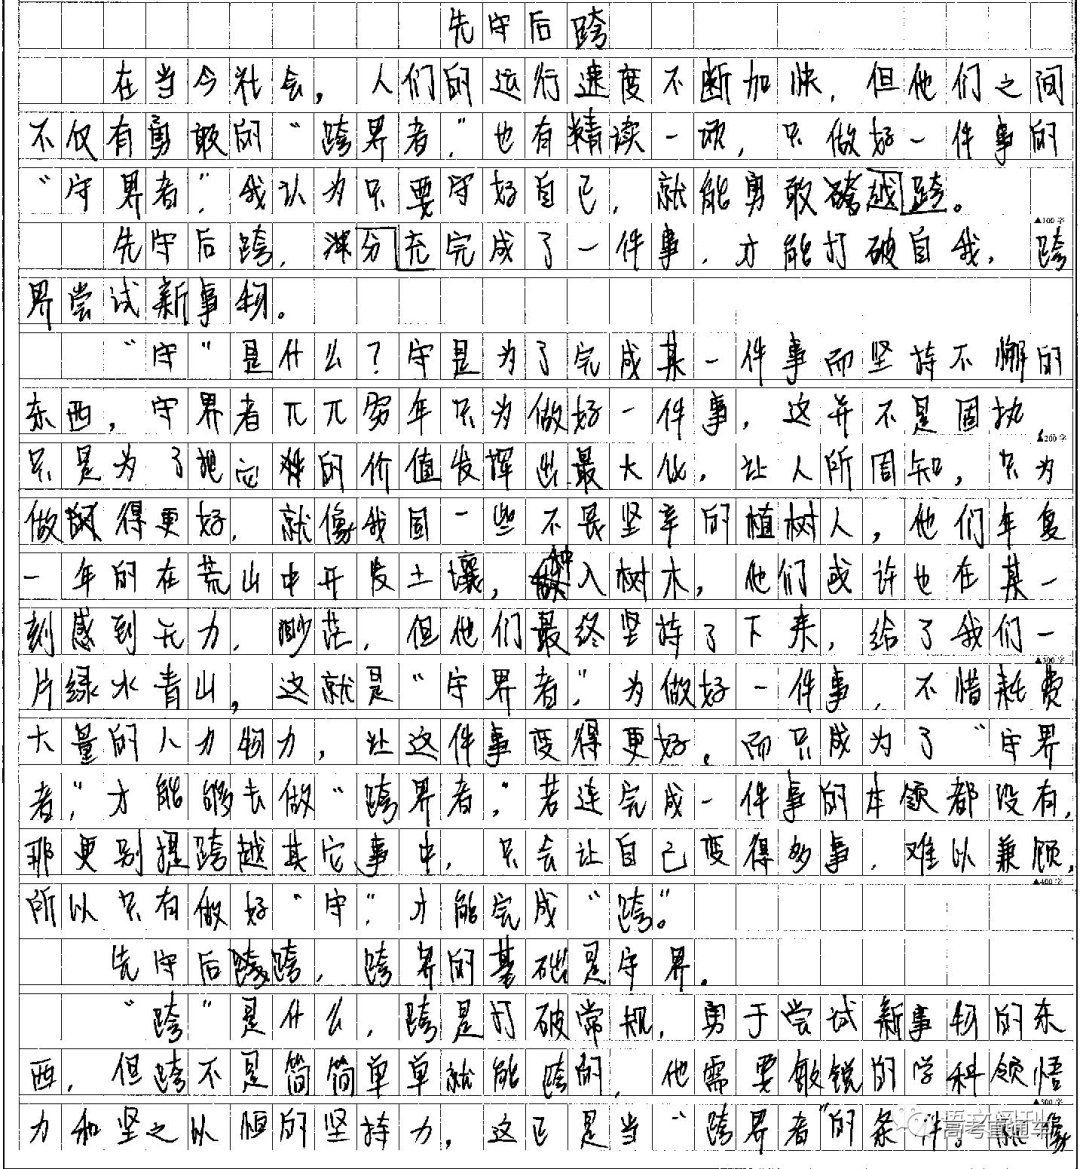 先守后跨
在当今社会，人们的运行速度不断加快，但他们之间
不仅有勇敢的“跨界者”也有精读一项，只做好一件事的
“守界者”，我认为只要守好自己，就能勇敢跨越跨。
▲100字
先守后跨，充分完成了一件事，才能打破自我，跨
界尝试新事物。
“守”是什么？守是为了完成某一件事而坚持不懈的
东西，守界者兀兀穷年只为做好一件事，这并不是固执
▲200字
只是为了把它的价值发挥出最大化，让人所周知，只为
做得更好，就像我国一些不畏坚辛的植树人，他们年复
一年的在荒山中开发土壤，种入树木，他们或许也在某一
刻感到无力，渺茫，但他们最终坚持了下来，给了我们一
▲300字
片绿水青山，这就是“守界者”，为做好一件事，不惜耗费
大量的人力物力，让这件事变得更好，而只成为了“守界
者”，才能够去做“跨界者”，若连完成一件事的本领都没有，
那更别提跨越其它事中，只会让自己变得多事，难以兼顾，
▲400字
所以只有做好“守”，才能完成“跨”。
先守后跨，跨界的基础是守界。
“跨”是什么，跨是打破常规，勇于尝试新事物的东
西，但跨不是简简单单就能跨的，他需要敏锐的学科领悟
▲500字
力和坚之以恒的坚持力，这已是当“跨界者”的条件。就像
高考直通车